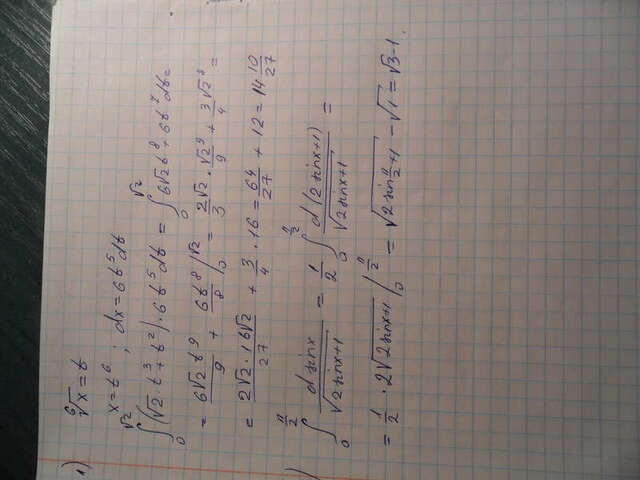 1) ⁶√x = t
x = t⁶ ; dx = 6t⁵dt
∫₀^√2 (√2 · t³ + t²) · 6t⁵dt = ∫₀^√2 6√2 t⁸ + 6t⁷ dt =
= 6√2 t⁹/9 + 6t⁸/8 |₀^√2 = 2√2/3 · √2⁹/9 + 3√2⁸/4 =
= 2√2 · 16√2/27 + 3/4 · 16 = 64/27 + 12 = 14 10/27
) ∫₀^π/2 d sinx/√(2sinx+1) = 1/2 ∫₀^π/2 d(2sinx+1)/√(2sinx+1) =
= 1/2 · 2√(2sinx+1) |₀^π/2 = √(2sin π/2 +1) - √1 = √3-1.